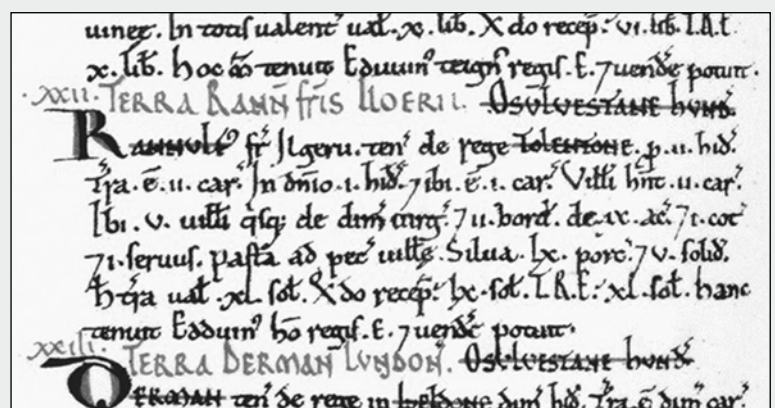 uineę. In totis ualent' ual. x. lib. X do recep. vi. lib. T.R.E.
x. lib. hoc m̄ tenuit Eduuin' teign' regis. E. ⁊ uende potuit.
.xxii. TERRA RANN̄ fr̄is ILGERII. OSULVESTANE hUND.
RANNULF' fr̄ Ilgeru. ten' de rege TOLENTONE. p. ii. hid'.
Tra. ē. ii. car'. In dn̄io. i. hid'. ⁊ ibi. ē. i. car'. Villi hn̄t. ii. car'.
Ibi. v. uilli q̄sq; de dim̄ uirg'. ⁊ ii. bord'. de. ix. ac'. ⁊ i. cot'
⁊ i. seruus. Pasta ad pec' uille. Silua. lx. porc'. ⁊ v. solid'.
H' tra ual' .xl. sol'. X do recep. lx. sol'. T.R.E.' xl. sol'. hanc
tenuit Edduin' hō regis. E. ⁊ uende potuit.
xxiii. TERRA DERMAN LVNDON'. OSULVESTANE hUND'
DERMAN ten' de rege in ISELDONE dim̄ hid'. Tra. ē dim̄ car'.